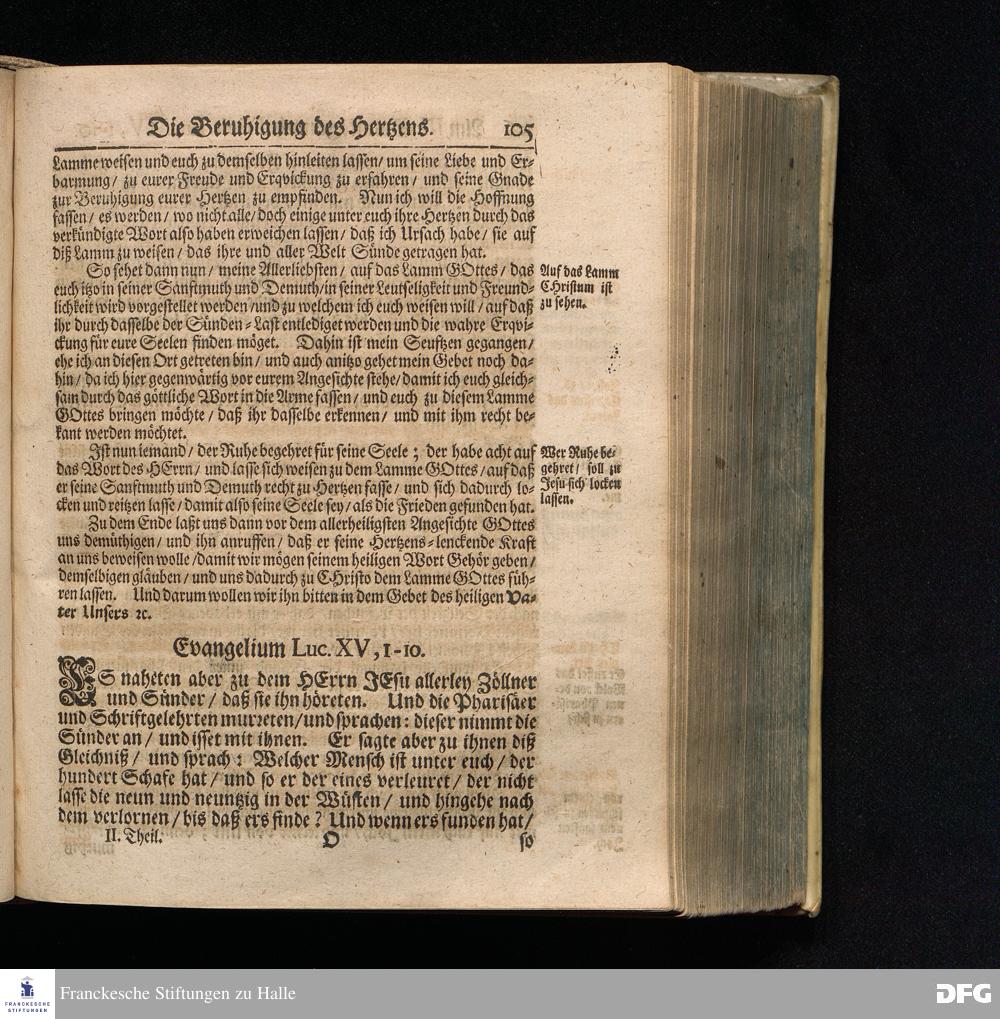 Die Beruhigung des Hertzens. 105
Lamme weisen und euch zu demselben hinleiten lassen/ um seine Liebe und Er-
barmung/ zu eurer Freude und Erqvickung zu erfahren/ und seine Gnade
zur Beruhigung eurer Hertzen zu empfinden. Nun ich will die Hoffnung
fassen/ es werden/ wo nicht alle/ doch einige unter euch ihre Hertzen durch das
verkündigte Wort also haben erweichen lassen/ daß ich Ursach habe/ sie auf
diß Lamm zu weisen/ das ihre und aller Welt Sünde getragen hat.
So sehet dann nun/ meine Allerliebsten/ auf das Lamm GOttes/ das
euch itzo in seiner Sanftmuth und Demuth/ in seiner Leutseligkeit und Freund-
lichkeit wird vorgestellet werden/ und zu welchem ich euch weisen will/ auf daß
ihr durch dasselbe der Sünden-Last entlediget werden und die wahre Erqvi-
ckung für eure Seelen finden möget. Dahin ist mein Seuftzen gegangen/
ehe ich an diesen Ort getreten bin/ und auch anitzo gehet mein Gebet noch da-
hin/ da ich hier gegenwärtig vor eurem Angesichte stehe/ damit ich euch gleich-
sam durch das göttliche Wort in die Arme fassen/ und euch zu diesem Lamme
GOttes bringen möchte/ daß ihr dasselbe erkennen/ und mit ihm recht be-
kant werden möchtet.
Auf das Lamm
CHristum ist
zu sehen.
Ist nun iemand/ der Ruhe begehret für seine Seele; der habe acht auf
das Wort des HErrn/ und lasse sich weisen zu dem Lamme GOttes/ auf daß
er seine Sanftmuth und Demuth recht zu Hertzen fasse/ und sich dadurch lo-
cken und reitzen lasse/ damit also seine Seele sey/ als die Frieden gefunden hat.
Wer Ruhe be-
gehret/ soll zu
Jesu sich locken
lassen.
Zu dem Ende laßt uns dann vor dem allerheiligsten Angesichte GOttes
uns demüthigen/ und ihn anruffen/ daß er seine Hertzens-lenckende Kraft
an uns beweisen wolle/ damit wir mögen seinem heiligen Wort Gehör geben/
demselbigen gläuben/ und uns dadurch zu CHristo dem Lamme GOttes füh-
ren lassen. Und darum wollen wir ihn bitten in dem Gebet des heiligen Va-
ter Unsers ꝛc.
Evangelium Luc. XV, 1-10.
ES naheten aber zu dem HErrn JEsu allerley Zöllner
und Sünder/ daß sie ihn höreten. Und die Pharisäer
und Schriftgelehrten murreten/ und sprachen: dieser nimmt die
Sünder an/ und isset mit ihnen. Er sagte aber zu ihnen diß
Gleichniß/ und sprach: Welcher Mensch ist unter euch/ der
hundert Schafe hat/ und so er der eines verleuret/ der nicht
lasse die neun und neuntzig in der Wüsten/ und hingehe nach
dem verlornen/ bis daß ers finde? Und wenn ers funden hat/
II. Theil. O so
FRANCKESCHE
STIFTUNGEN
Franckesche Stiftungen zu Halle
DFG